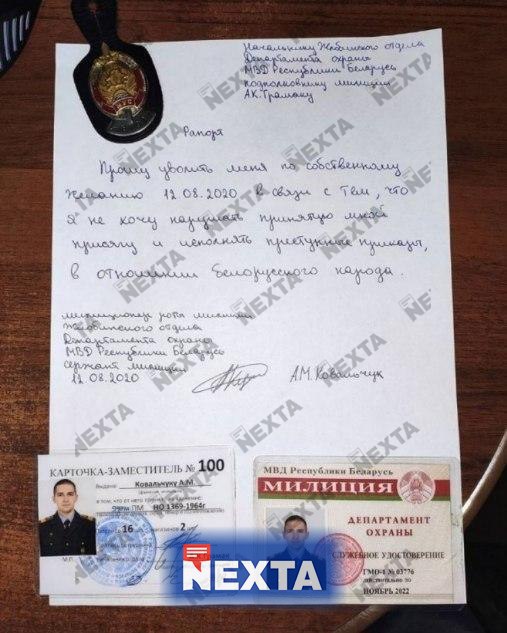 Начальнику Жабинского отдела
Департамента охраны
МВД Республики Беларусь
подполковнику милиции
А.К.
Рапорт
Прошу уволить меня по собственному
желанию 12.08.2020 в связи с тем, что
я не хочу нарушать принятую мной
присягу и исполнять преступные приказы,
в отношении белорусского народа.
милиционер роты милиции
Жабинского отдела
Департамента охраны
МВД Республики Беларусь
сержант милиции
12.08.2020
А.М.Ковальчук
КАРТОЧКА-ЗАМЕСТИТЕЛЬ № 100
Выдана Ковальчуку А.М.
в том, что от него принят на хранение
ПМ НО 1369-1964г
16 магазинов 2
М.П.
МВД Республики Беларусь
МИЛИЦИЯ
ДЕПАРТАМЕНТ
ОХРАНЫ
СЛУЖЕБНОЕ УДОСТОВЕРЕНИЕ
ГМО-1 № 03776
ДЕЙСТВИТЕЛЬНО ПО
НОЯБРЬ 2022
NEXTA